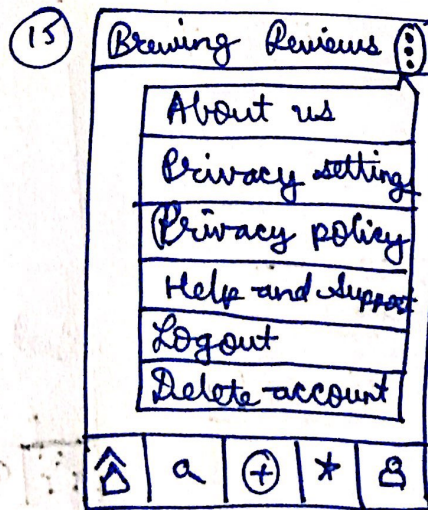 15
Brewing Reviews
About us
Privacy settings
Privacy policy
Help and Support
Logout
Delete account